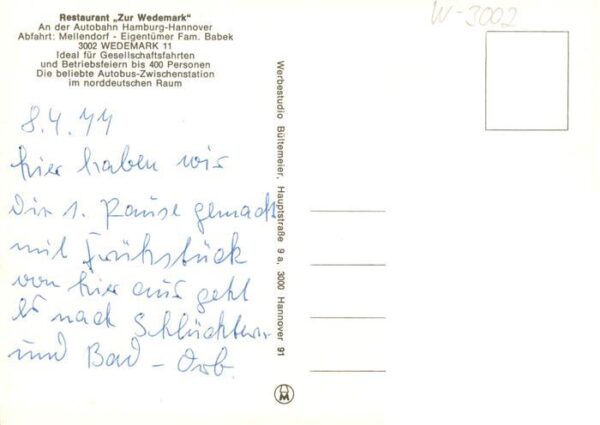 W-3002
Restaurant „Zur Wedemark"
An der Autobahn Hamburg-Hannover
Abfahrt: Mellendorf - Eigentümer Fam. Babek
3002 WEDEMARK 11
Ideal für Gesellschaftsfahrten
und Betriebsfeiern bis 400 Personen
Die beliebte Autobus-Zwischenstation
im norddeutschen Raum
8.4.77
hier haben wir
die 1. Pause gemacht
mit Frühstück
von hier aus geht
es nach Schlüchtern
und Bad - Orb.
Werbestudio Bültemeier, Hauptstraße 9 a, 3000 Hannover 91